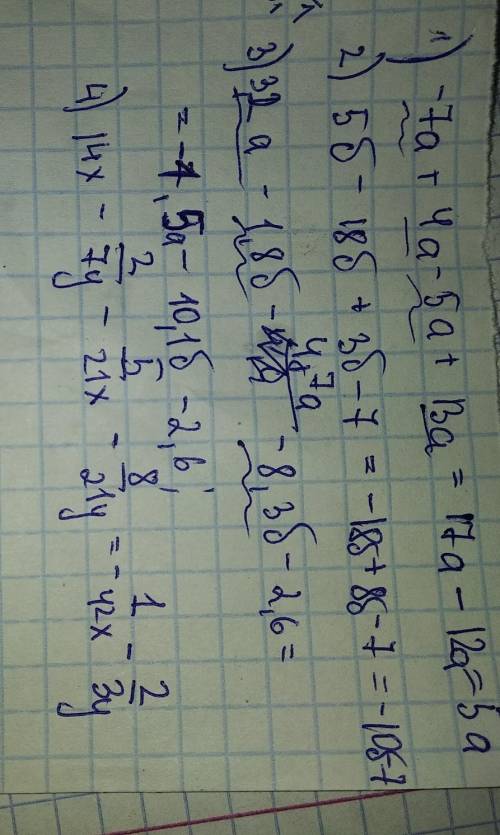 1) -7a + 4a - 5a + 13a = 17a - 12a = 5a
2) 5б - 18б + 3б - 7 = -18б + 8б - 7 = -10б-7
3) 3,2a - 1,8б - 4,7a - 8,3б - 2,6 =
= -1,5a - 10,1б - 2,6
4) 14x - 2/7y - 5/21x - 8/21y = - 1/42x - 2/3y